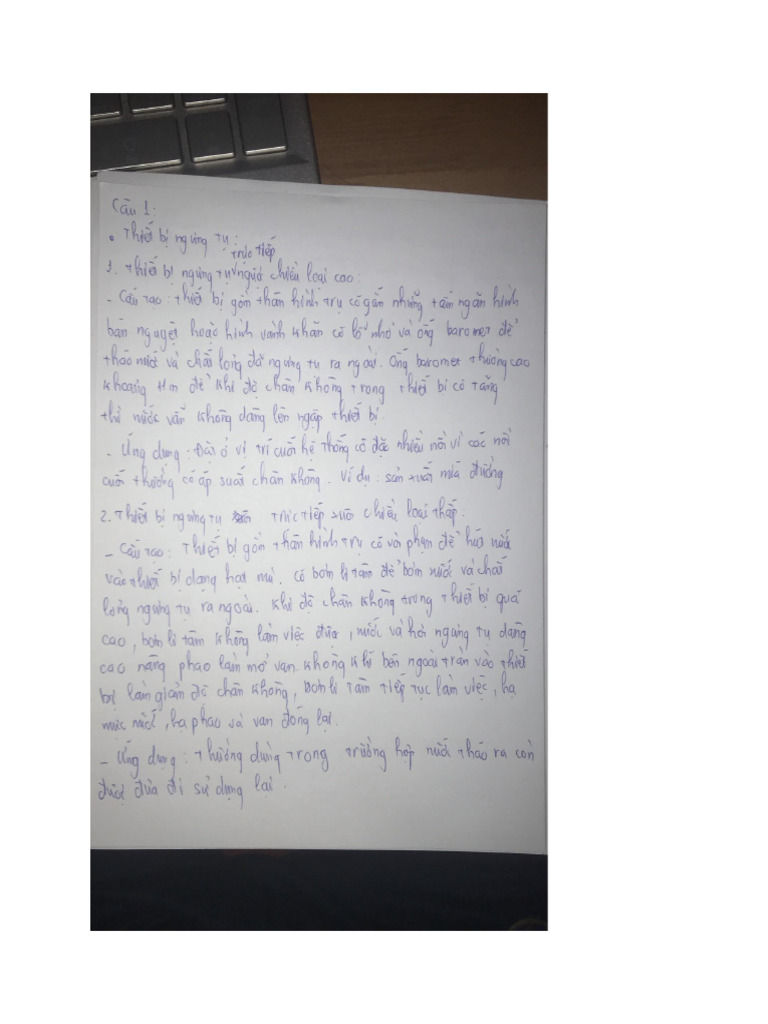 Câu 1:
• Thiết bị ngưng tụ:
1. Thiết bị ngưng tụ trực tiếp ngược chiều loại cao:
- Cấu tạo: thiết bị gồm thân hình trụ có gắn những tấm ngăn hình
bán nguyệt hoặc hình vành khăn có lỗ nhỏ và ống baromet để
tháo nước và chất lỏng đã ngưng tụ ra ngoài. Ống baromet thường cao
khoảng 11m để khi độ chân không trong thiết bị có tăng
thì nước vẫn không dâng lên ngập thiết bị.
- Ứng dụng: Đặt ở vị trí cuối hệ thống cô đặc nhiều nồi vì các nồi
cuối thường có áp suất chân không. Ví dụ: sản xuất mía đường
2. Thiết bị ngưng tụ trực tiếp xuôi chiều loại thấp:
- Cấu tạo: Thiết bị gồm thân hình trụ có vòi phun để hút nước
vào thiết bị dạng hạt mù. Có bơm li tâm để bơm nước và chất
lỏng ngưng tụ ra ngoài. Khi độ chân không trong thiết bị quá
cao, bơm li tâm không làm việc được, nước và hơi ngưng tụ dâng
cao nâng phao làm mở van. Không khí bên ngoài tràn vào thiết
bị làm giảm độ chân không, bơm li tâm tiếp tục làm việc, hạ
mức nước, hạ phao và van đóng lại.
- Ứng dụng: thường dùng trong trường hợp nước tháo ra còn
được đưa đi sử dụng lại.